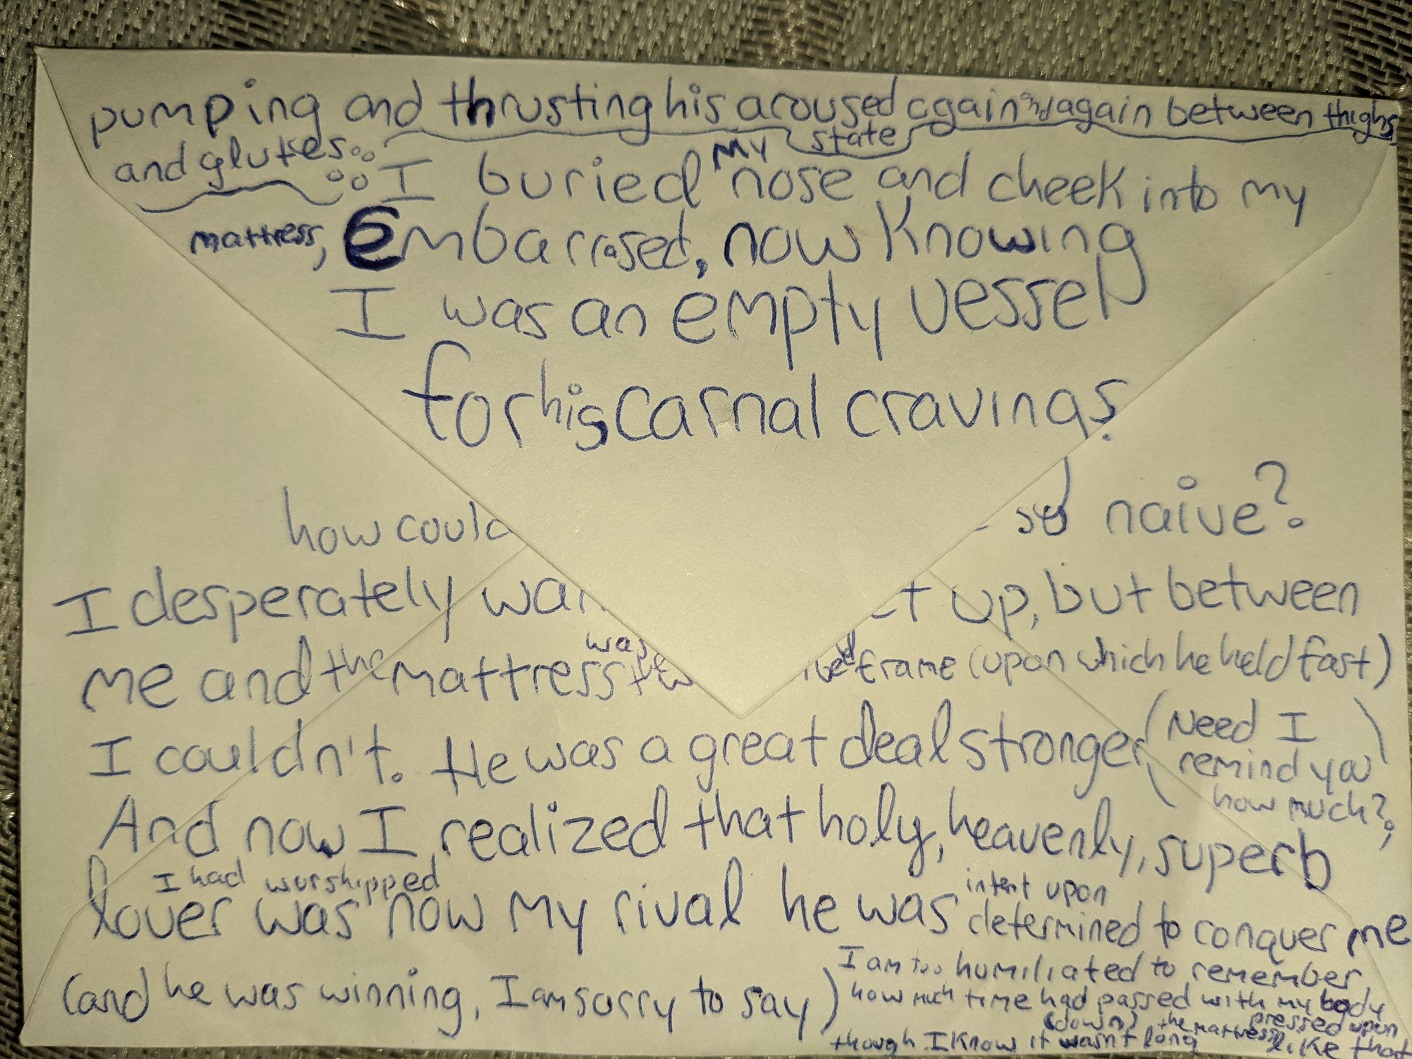 pumping and thrusting his aroused again and again between thighs
state
and glutes
I buried my nose and cheek into my
mattress, embarrased, now knowing
I was an empty vessel
for his carnal cravings.
how could so naive?
I desperately up, but between
me and the mattress was frame (upon which he held fast)
I couldn't. He was a great deal stronger (Need I
remind you
how much?)
And now I realized that holy, heavenly, superb
lover I had worshipped was now my rival he was intent upon
determined to conquer me
(and he was winning, I am sorry to say)
I am too humiliated to remember
how much time had passed with my body
pressed upon
(down) the mattress like that
though I know it wasn't long